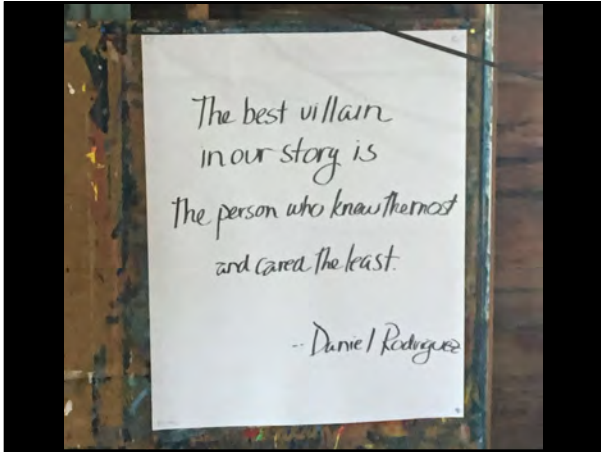 The best villain
in our story is
The person who knew the most
and cared the least.
-- Daniel Rodriguez